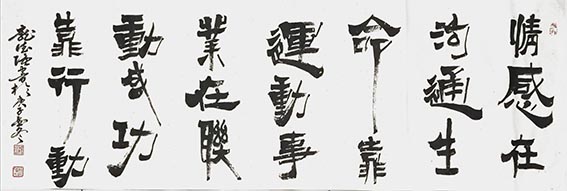 情感在
沟通生
命靠
運動事
業在聯
動成功
靠行動